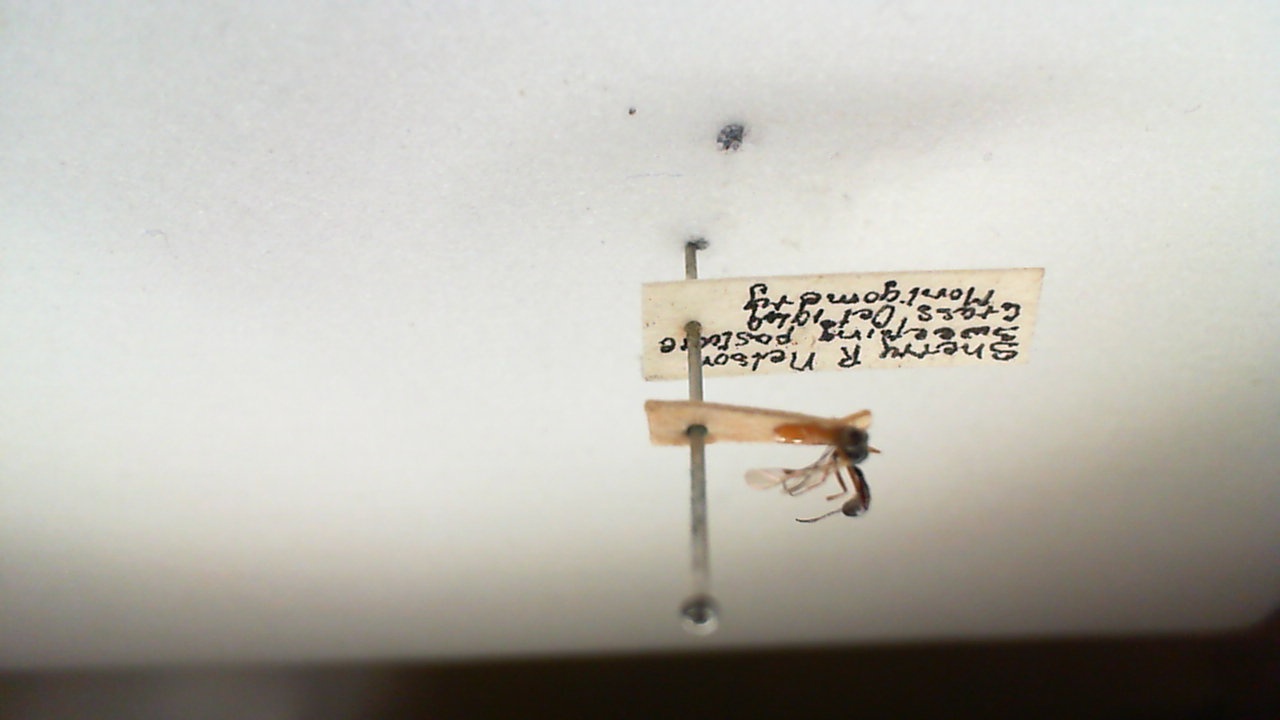 Sherry R Nelson
Sweeping pasture
Grass Oct 1949
Montgomery